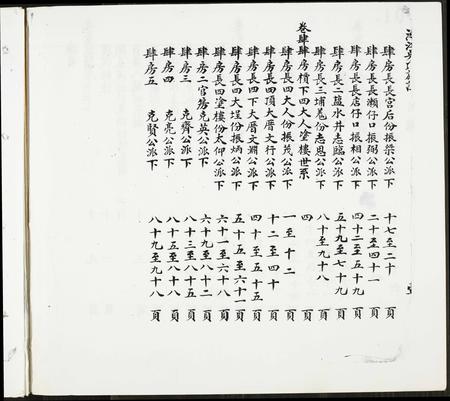 肆房長長宮后份振榮公派下 十七至二十 頁
肆房長長瀨仔口振弼公派下 二十至四十一 頁
肆房長長店仔口振相公派下 四十二至五十九 頁
肆房長二蔬水井志臨公派下 五十九至七十九 頁
肆房長三埔尾份志恩公派下 八十至九十八 頁
卷肆肆房樍下四大人塗樓世系 四
肆房長四大人份振茂公派下 一至十二 頁
肆房長四頂大厝文行公派下 十二至四十 頁
肆房長四下大厝文瀾公派下 四十至五十五 頁
肆房長四大埕份振炳公派下 五十五至六十一 頁
肆房長四塗樓份太仰公派下 六十一至六十八 頁
肆房二官路克英公派下 六十九至八十二 頁
肆房三 克齊公派下 八十三至八十五 頁
肆房四 克亮公派下 八十五至八十八 頁
肆房五 克賢公派下 八十九至九十八 頁